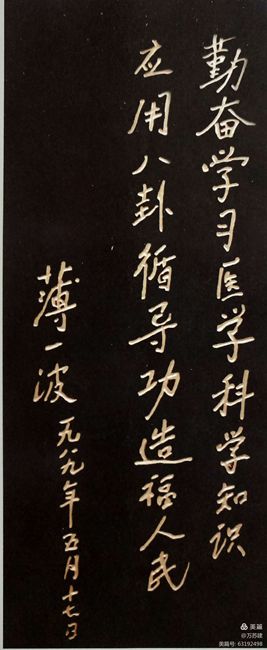 勤奋学习医学科学知识
应用八卦循导功造福人民
薄一波 一九八九年五月十七日
美篇
@万苏建
美篇号: 63192498